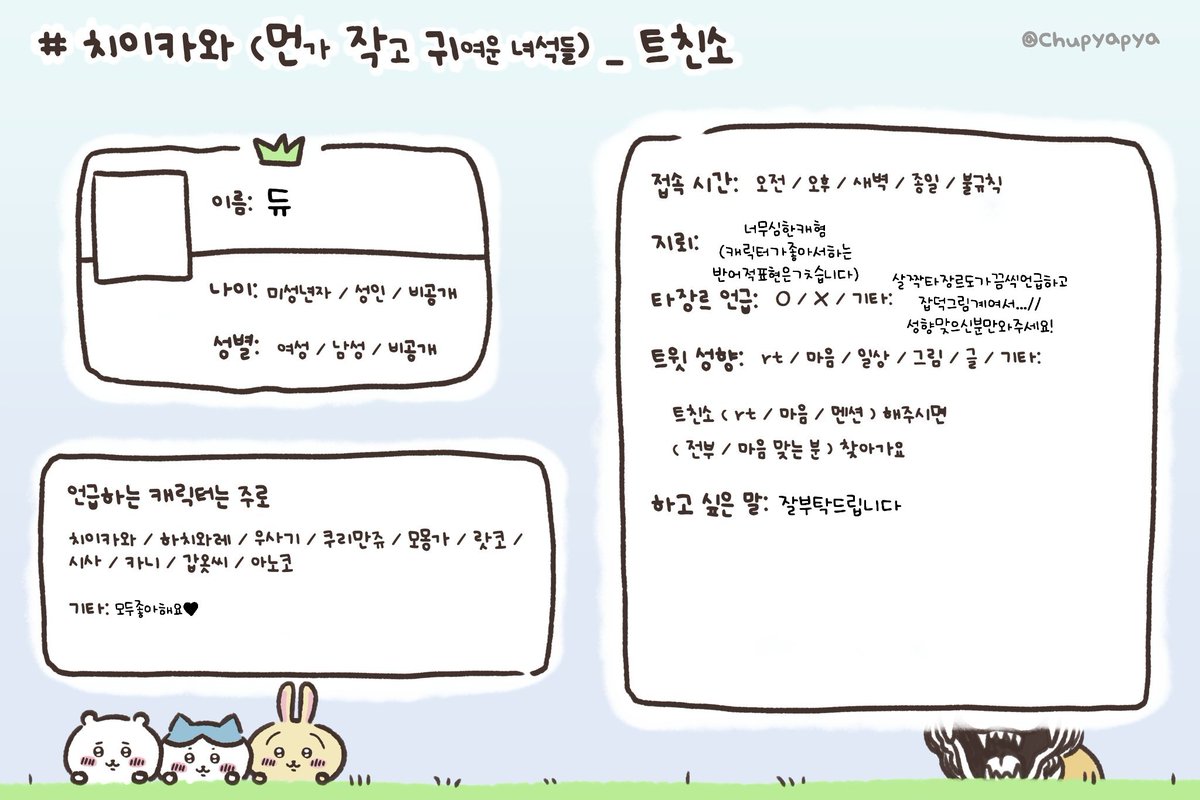 # 치이카와 (먼가 작고 귀여운 녀석들) _ 트친소
@Chupyapya
이름: 듀
나이: 미성년자 / 성인 / 비공개
성별: 여성 / 남성 / 비공개
언급하는 캐릭터는 주로
치이카와 / 하치와레 / 우사기 / 쿠리만쥬 / 모몽가 / 랏코 /
시사 / 카니 / 갑옷씨 / 아노코
기타: 모두좋아해요♥
접속 시간: 오전 / 오후 / 새벽 / 종일 / 불규칙
지뢰: 너무심한캐혐
(캐릭터가좋아서하는
반어적표현은ㄱㅊ습니다)
타장르 언급: O / X / 기타: 살짝타장르도가끔씩언급하고
잡덕그림계여서...//
성향맞으신분만와주세요!
트윗 성향: rt / 마음 / 일상 / 그림 / 글 / 기타:
트친소 ( rt / 마음 / 멘션 ) 해주시면
( 전부 / 마음 맞는 분 ) 찾아가요
하고 싶은 말: 잘부탁드립니다